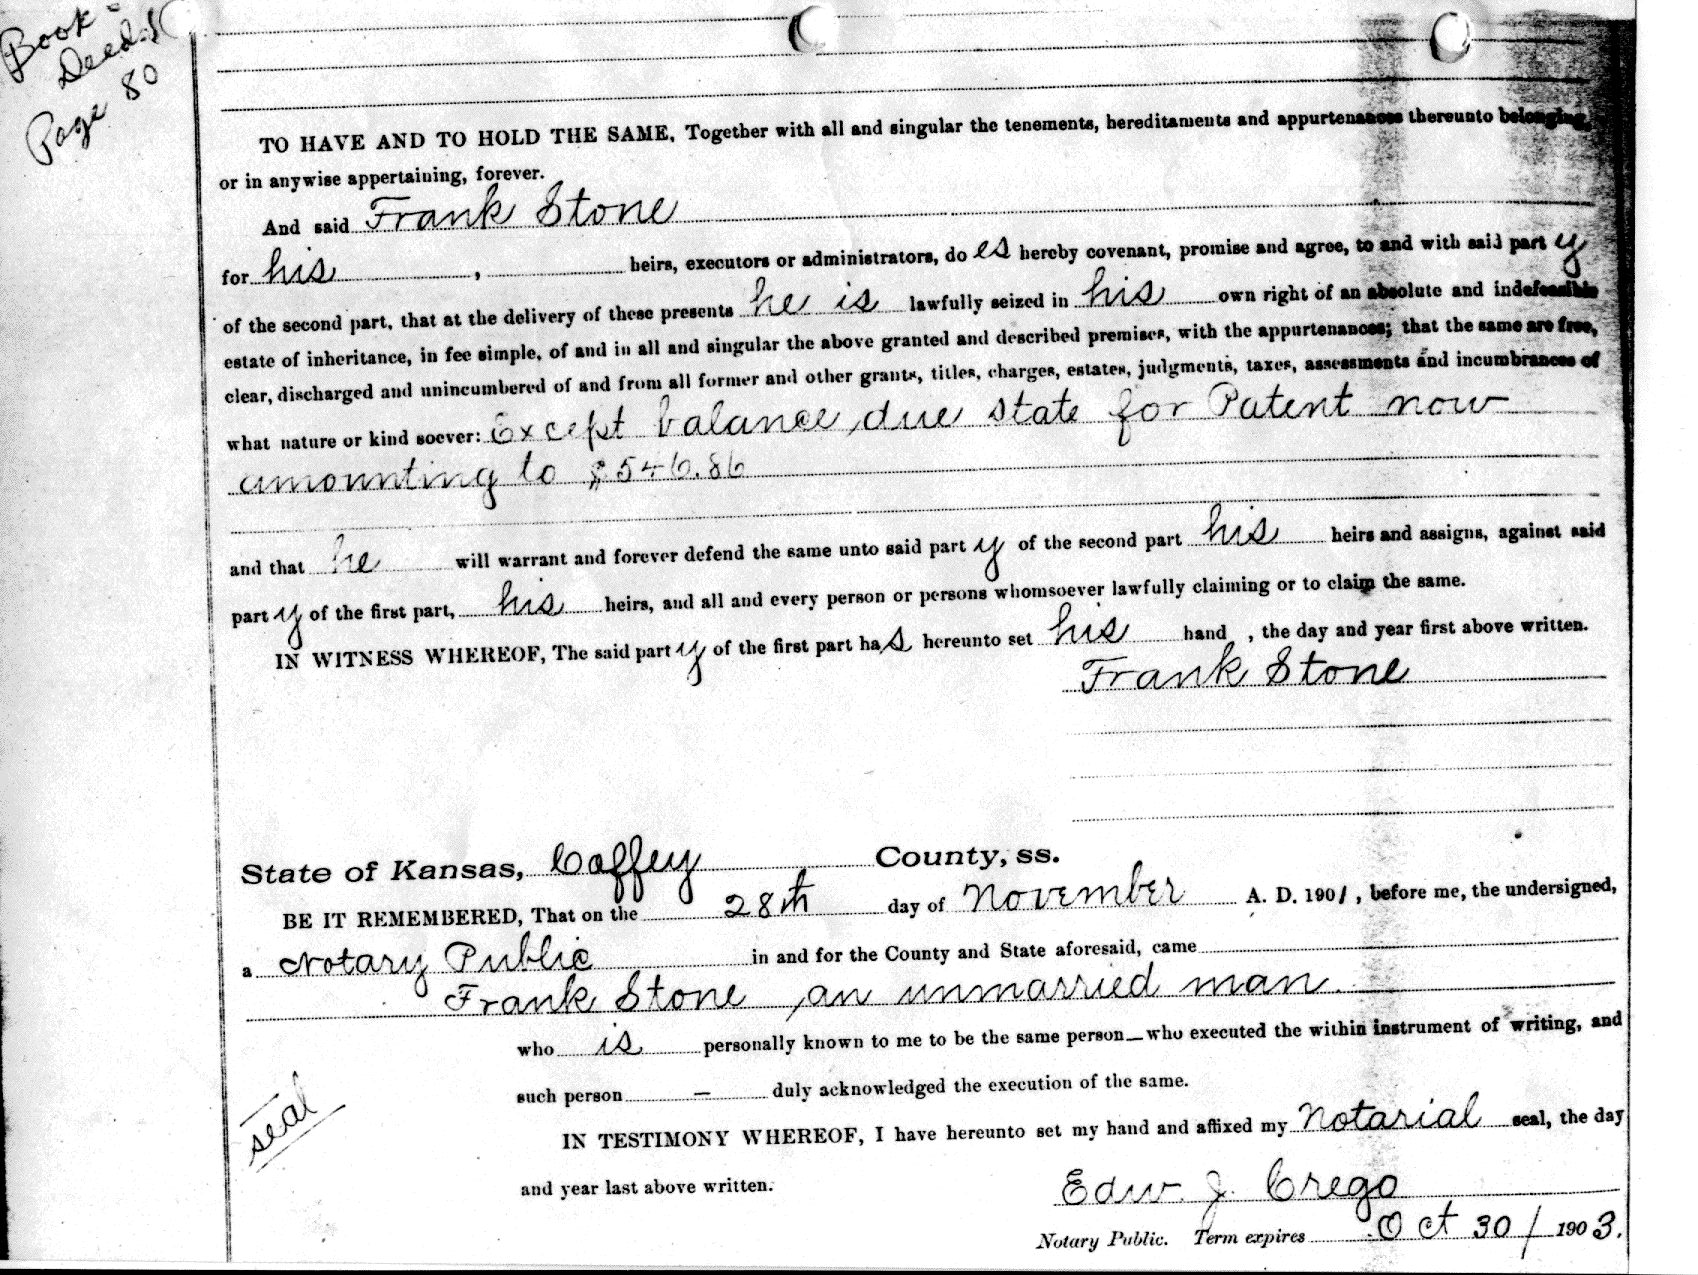 Book -
Deeds
Page 80
TO HAVE AND TO HOLD THE SAME, Together with all and singular the tenements, hereditaments and appurtenances thereunto belonging,
or in anywise appertaining, forever.
And said Frank Stone
for his , heirs, executors or administrators, do es hereby covenant, promise and agree, to and with said part y
of the second part, that at the delivery of these presents he is lawfully seized in his own right of an absolute and indefeasible
estate of inheritance, in fee simple, of and in all and singular the above granted and described premises, with the appurtenances; that the same are free,
clear, discharged and unincumbered of and from all former and other grants, titles, charges, estates, judgments, taxes, assessments and incumbrances of
what nature or kind soever: Except balance due state for Patent now
amounting to $546.86
and that he will warrant and forever defend the same unto said part y of the second part his heirs and assigns, against said
part y of the first part, his heirs, and all and every person or persons whomsoever lawfully claiming or to claim the same.
IN WITNESS WHEREOF, The said part y of the first part has hereunto set his hand , the day and year first above written.
Frank Stone
State of Kansas, Coffey County, ss.
BE IT REMEMBERED, That on the 28th day of November A. D. 1901, before me, the undersigned,
a Notary Public in and for the County and State aforesaid, came
Frank Stone, an unmarried man.
who is personally known to me to be the same person — who executed the within instrument of writing, and
such person — duly acknowledged the execution of the same.
IN TESTIMONY WHEREOF, I have hereunto set my hand and affixed my Notarial seal, the day
seal
and year last above written.
Edw. J. Crego
Notary Public. Term expires Oct 30 / 1903.